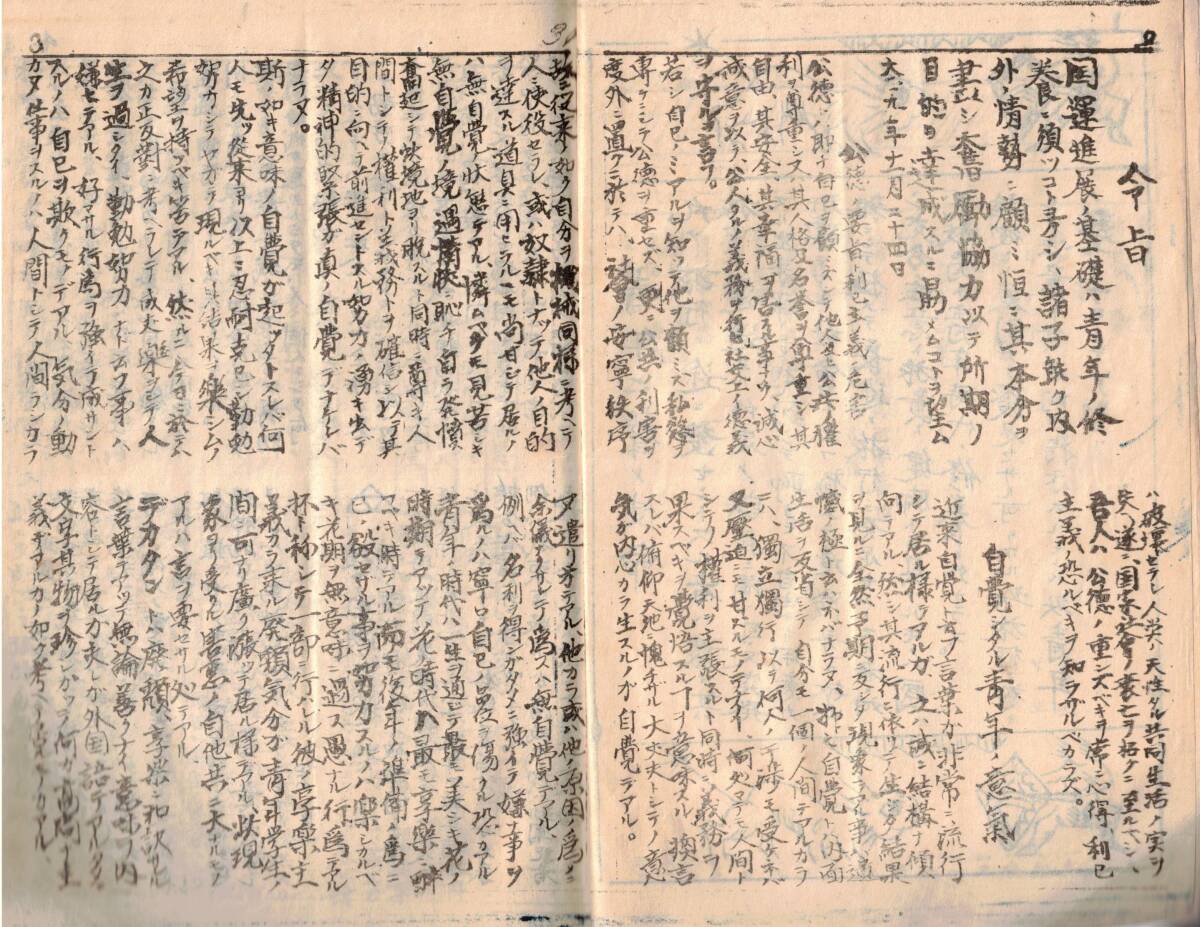 2
令旨
国運進展ノ基礎ハ青年ノ修
養ニ須ツコト多シ、諸子能ク内
外ノ情勢ニ顧ミ恒ニ其本分ヲ
盡シ奮励協力以テ所期ノ
目的ヲ達成スルニ勗メムコトヲ望ム
大、九年十一月二十四日
公徳ノ要旨利己主義ノ危害
公徳ノ即チ自己ヲ顧ミズシテ他人及公共ノ權
利ヲ尊重シ又其人格又名誉ヲ尊重シ其
自由、其安全、其幸福ヲ害セザル事ナク、誠心
誠意ヲ以テ、公人タル義務ヲ行ヒ社会上ノ徳義
ヲ守ルヲ言フ。
若シ自己ノミアルヲ知ッテ他ヲ顧ミズ私慾ヲ
専ラニシテ公徳ヲ重ゼズ、更ニ公共ノ利害ヲ
度外ニ置クニ於テハ、社會ノ安寧秩序
ハ破壊セラレ人類ノ天性タル共同生活ノ実ヲ
失ヒ遂ニ国家社會ノ衰亡ヲ招クニ至ルベシ、
吾人ハ公徳ノ重ンズベキヲ常ニ心得、利己
主義ノ恐ルベキヲ知ラザルベカラズ。
自覺シタル青年ノ意氣
近来自覺ト云フ言葉ガ非常ニ流行
シテ居ル様デアルガ、之ハ誠ニ結構ナ傾
向デアル、然シ其流行ニ依リテ生ジタ結果
ヲ見ルニ全然予期ニ反シタ現象アル事ハ遺
憾ノ極ト云ハネバナラヌ、抑モ自覺トハ内面
生活ヲ反省シテ自分モ一個ノ人間デアルカラ
ニハ、獨立獨行以テ何人ノ干渉モ受ケネバ
又壓迫ニモ甘スルモノデナイ、何処マデモ人間ト
シテノ權利ヲ主張スルト同時ニ義務ヲ
果スベキヲ覺悟スル事ヲ意味スル、換言
スレバ俯仰天地ニ愧ヂザル大丈夫トシテノ意
気ガ内心カラ生スルノガ自覺デアル。
3
故ニ従来ノ如ク自分ヲ機械同様ニ考ヘテ
人ニ使役セラレ、或ハ奴隷トナッテ他人ノ目的
ヲ達スル道具ニ用ヒラルヽモ尚甘ンジテ居ル
ハ無自覺ノ状態デアル、憐ムベク又見苦シキ
無自覺ノ境遇ヲ慚愧恥ヂ自ラ発憤
奮起シテ此境地ヲ脱スルト同時ニ尊キ人
間トシテノ權利ト義務トヲ確信シ以テ其
目的ニ向ヘテ前進セントスル努力ノ湧キ出デ
タ精神的緊張ガ真ノ自覺デナケレバ
ナラヌ。
斯ノ如キ意味ノ自覺が起ッタトスレバ何
人モ先ヅ従来ヨリ以上ニ忍耐克己シ勤勉
努力シテヤガテ現ルベキ結果ヲ樂シムノ
希望ヲ持ツベキ筈デアル、然ルニ今日ニ於テハ
之ガ正反對ニ考ヘラレテ成丈樂ヲシテ人
生ヲ過シタイ、勤勉努力ナド云フ事ハ、
嫌ヒデアル、好マザル行為ヲ強イテ成サント
スルノハ自己ヲ欺クモノデアル、気分ノ動
カヌ仕事ヲスルノハ人間トシテ人間ランカラ
ヌ遣リ方デアル、他カラ或ハ他ノ原因ノ為ニ
余儀ナクサレテ為スハ無自覺デアル、
例ヘバ名利ヲ得ンガタメニ強イテ嫌ナ事ヲ
為スルハ寧ロ自己ノ品位ヲ傷クル恐ガアル
青年ノ時代ハ一生ヲ通ジテ最モ美シキ花ノ
時期デアッテ花ノ時代ハ最モ享樂ニ酔
フベキ時デアル、而モ後年ノ準備ノ為ニ
己ノ欲セザル事ヲ努力スルノハ樂シカルベ
キ花期ヲ無意味ニ過ス愚ナル行為デアル
杯ト称シテ一部ニ行ハレル彼ノ享樂主
義カラ来ル廃頽気分が青年学生ノ
間ニ可ナリ廣ク漲ッテ居ル様デアル、此現
象ヨリ受クル害悪ノ自他共ニ大ナルモノ
アルハ言ヲ要セザル処デアル
デカタントハ廃頽、享楽ト和訳サレル
言葉デアッテ無論善クナイ意味ヲ内
容トシテ居ルガ夫レガ外国語デアルタメ
文字其物ヲ珍シガッテ何カ高尚ナ主
義デデモアルカノ如ク考ヘ
3